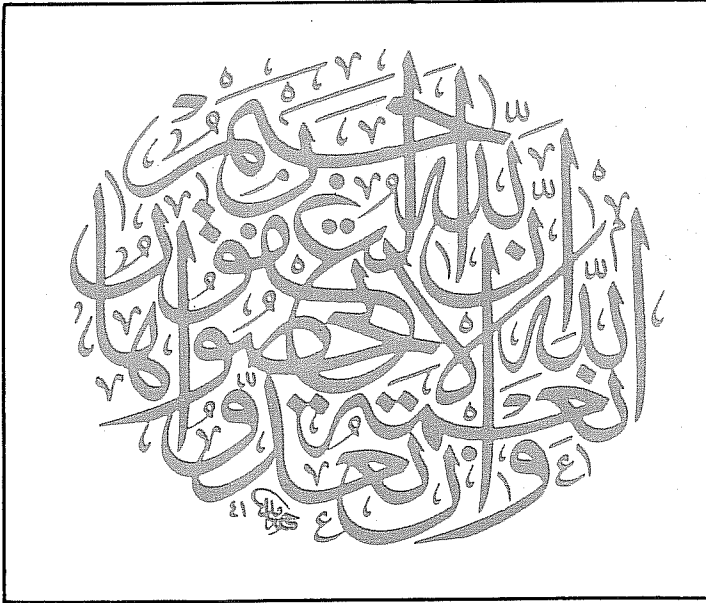 وَإِن تَعُدُّوا نِعْمَةَ اللَّهِ لَا تُحْصُوهَا إِنَّ اللَّهَ لَغَفُورٌ رَحِيمٌ
٤١